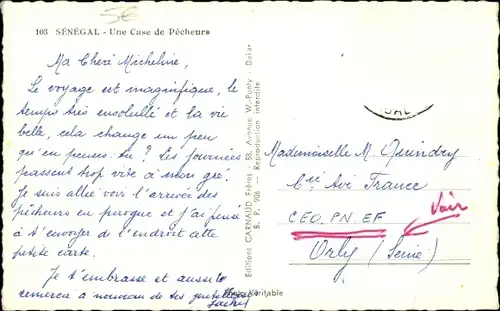 5€
103 SÉNÉGAL - Une Case de Pêcheurs
Ma Cheré Micheline,
Le voyage est magnifique, le
temps très ensoleillé et la vie
belle, cela change un peu
qu'en penses-tu ? Les journées
passent trop vite à mon gré.
Je suis allée voir l'arrivée des
pêcheurs en pirogue et j'ai pensé
à t'envoyer de l'endroit cette
petite carte.
Je t'embrasse et aussi te
remercie à nouveau de tes gentillesses
Editions CARMAUD Frères - 58, Avenue W.-Ponty - Dakar
B. P. 906 - Reproduction interdite
Photo Véritable
Mademoiselle M. Quindry
Cie Air France
CEO.PN.EF
Voir
Orly (Seine)